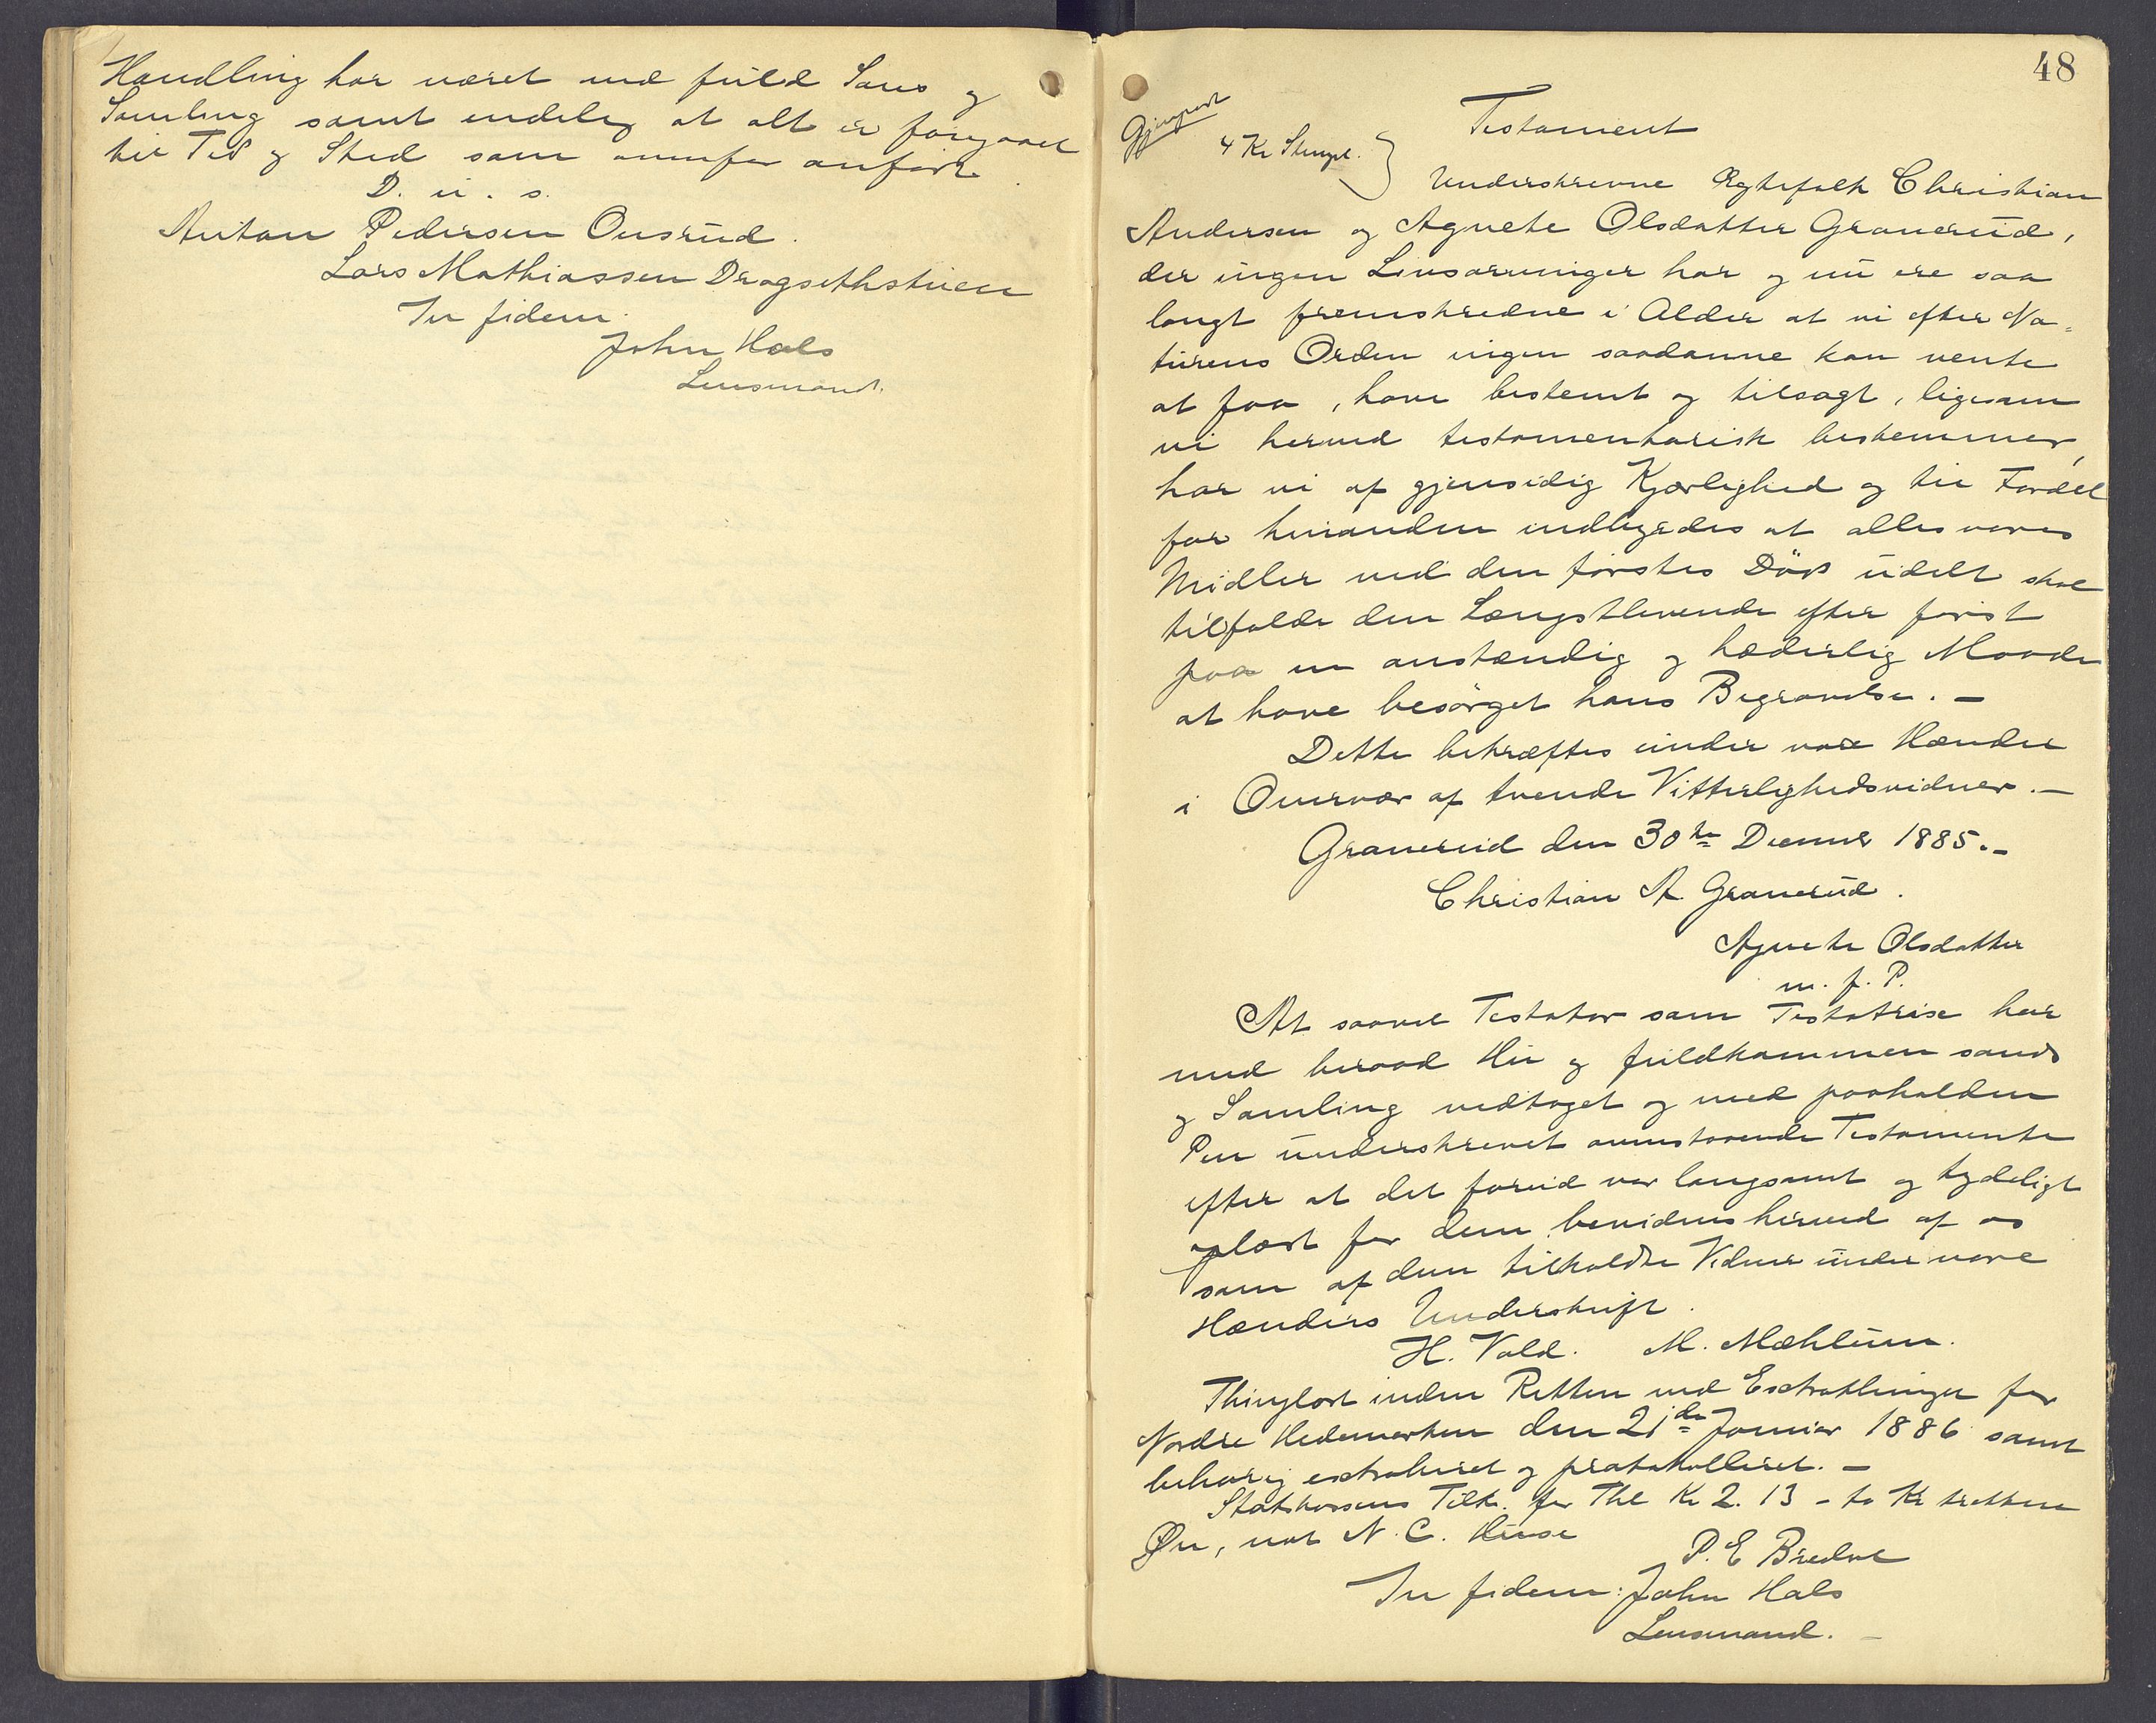 Handling har været med fuld Sans og
Samling samt endelig at alt er foregaaet
til Tid og Sted som ovenfor anført.
D. u. s.
Anton Pedersen Onsrud.
Lars Mathiassen Dragsethstuen
In fidem.
John Hals
Lensmand.
48
Testament
4 Kr Stempl.
Underskrevne Ægtefolk Christian
Andersen og Agnete Olsdatter Granerud,
der ingen Livsarvinger har og nu ere saa
langt fremskredne i Alder at vi efter Na-
turens Orden ingen saadanne kan vente
at faa, have bestemt og tilsagt, ligesom
vi herved testamentarisk bestemmer,
har vi af gjensidig Kjærlighed og til Fordel
for hinanden indbyrdes at alles vores
Midler ved den førstes Død udelt skal
tilfalde den Længstlevende efter først
paa en anstændig og hæderlig Maade
at have besørget hans Begravelse. -
Dette bekræftes under vore Hænder
i Overvær af tvende Vitterlighedsvidner. -
Granerud den 30te Decembr 1885. -
Christian A. Granerud.
Agnete Olsdatter
m. f. P.
At saavel Testator som Testatrise har
med beraad Hu og fuldkommen sands
og Samling vedtaget og med paaholden
Pen underskrevet ovenstaaende Testamente
efter at det forud var langsomt og tydeligt
oplæst for dem, bevidnes herved af os
som af dem tilkaldte Vidner under vore
Hænders Underskrift.
H. Vold. M. Mæhlum.
Thinglæst inden Retten ved Extrathinget for
Nordre Hedemarken den 21de Januar 1886 samt
behørig extraheret og protokolleret. -
Statskassens Tilk. for Thl Kr 2. 13 - to Kr tretten
Øre, not N. C. Huse
P. E Bredvel
In fidem: John Hals
Lensmand. -